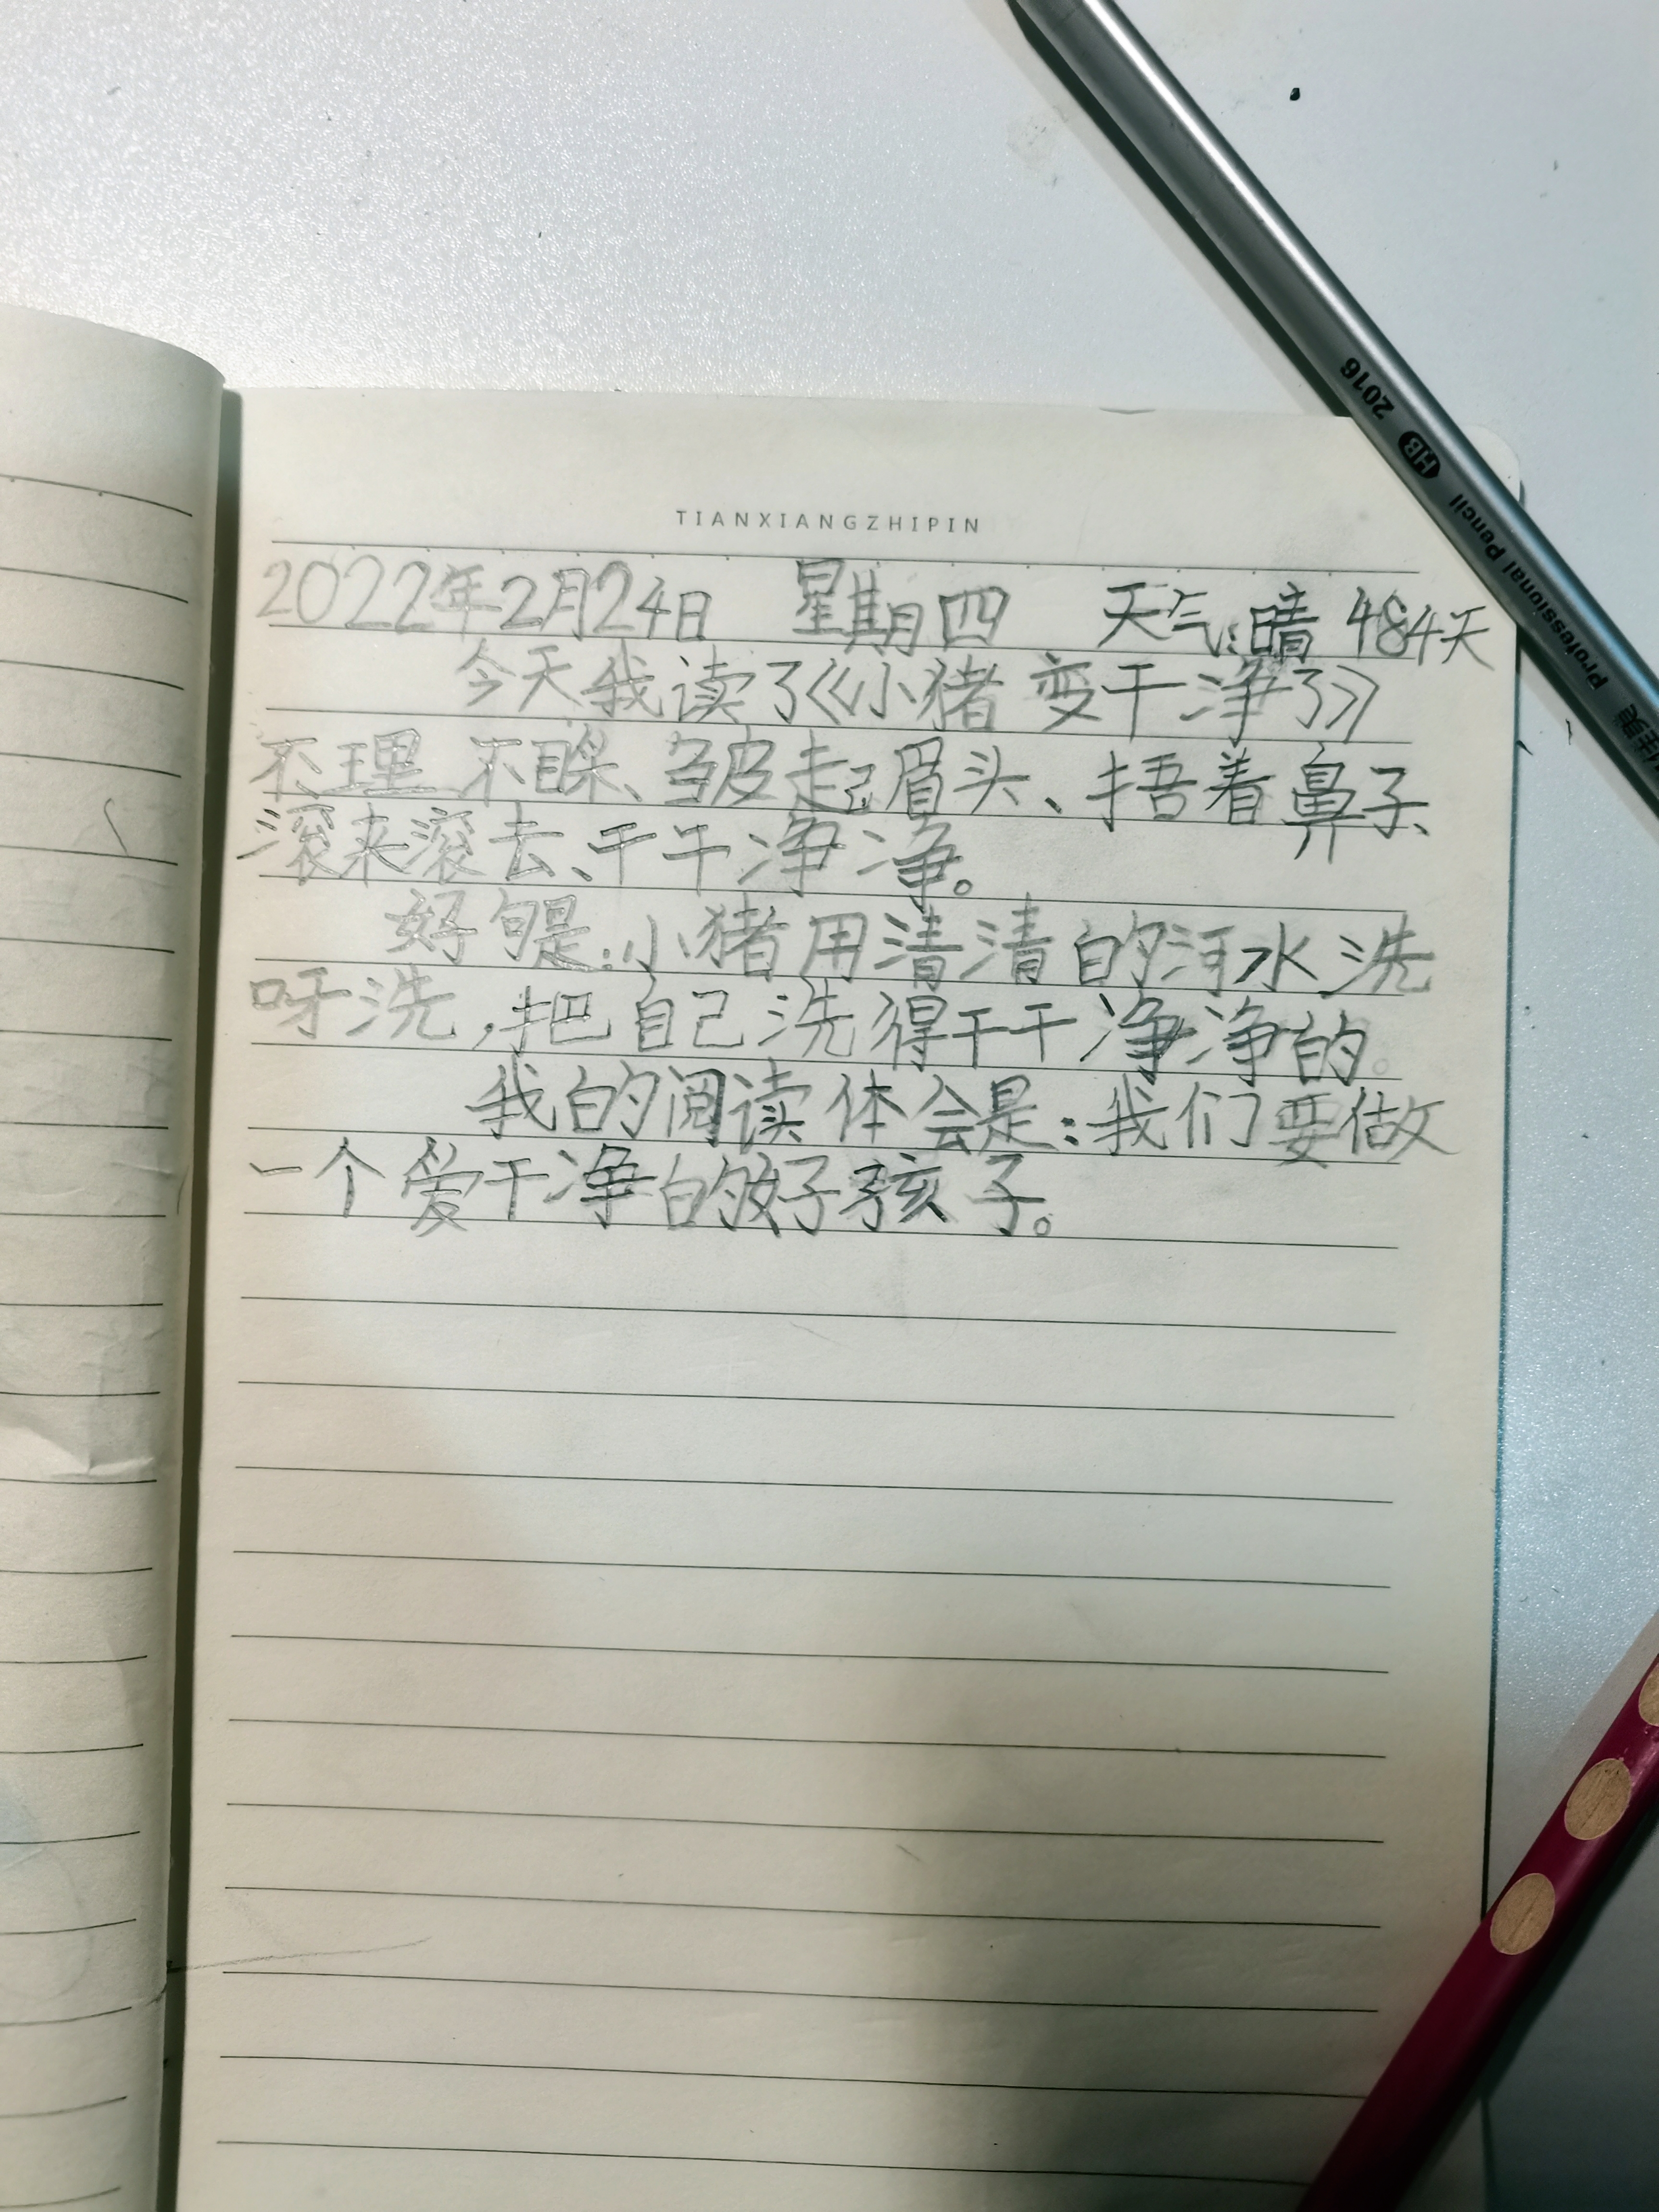 TIANXIANGZHIPIN
2022年2月24日 星期四 天气:晴 484天
今天我读了《小猪变干净了》
不理不睬、皱起眉头、捂着鼻子、
滚来滚去、干干净净。
好句是:小猪用清清的河水洗
呀洗,把自己洗得干干净净的。
我的阅读体会是:我们要做
一个爱干净的好孩子。
2016 HB Professional Pencil